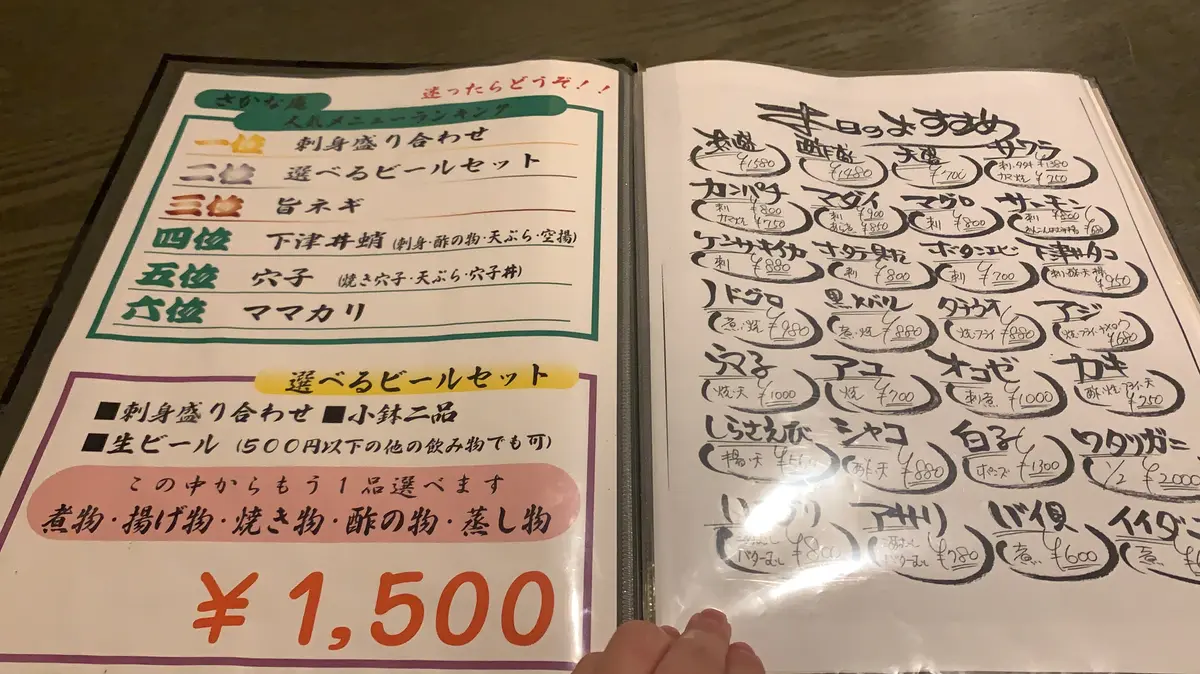 迷ったらどうぞ!!
さかな庵
人気メニューランキング
一位 刺身盛り合わせ
二位 選べるビールセット
三位 旨ネギ
四位 下津井蛸(刺身・酢の物・天ぷら・空揚)
五位 穴子 (焼き穴子・天ぷら・穴子丼)
六位 ママカリ
選べるビールセット
■刺身盛り合わせ ■小鉢二品
■生ビール (500円以下の他の飲み物でも可)
この中からもう1品選べます
煮物・揚げ物・焼き物・酢の物・蒸し物
¥1,500
本日のおすすめ
¥1580 酢盛 ¥1480 天盛 ¥700 サワラ 刺・タタキ ¥1380 カマ焼 ¥750
カンパチ 刺 ¥800 カマ焼 ¥750 マダイ 刺 ¥900 あら煮 ¥850 マグロ 刺 ¥800 サーモン 刺 ¥800
ケンサキイカ 刺 ¥880 ホタテ貝柱 刺 ¥800 ボタンエビ 刺 ¥700 下津井タコ ¥950
ノドグロ 煮・焼 ¥980 黒メバル 煮・焼 ¥880 タチウオ 焼・フライ ¥880 アジ ¥680
穴子 焼・天 ¥1000 アコ 焼 ¥700 オコゼ 刺煮 ¥1000 カキ 酢・焼・フライ・天 ¥250
しらさえび 揚・天 シャコ 酢・天 ¥880 白子 ポン酢 ¥1300 ワタリガニ 1/2 ¥2000
バターむし ¥800 アサリ 酒むし バターむし ¥780 バイ貝 煮 ¥600 イイダコ 煮